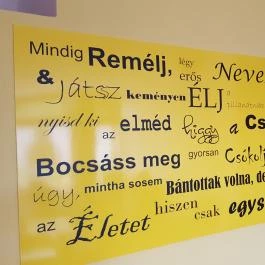 Mindig Remélj, légy erős Neve
& játsz keményen ÉLJ a pillanatnak
nyisd ki az elméd higgy a Cs
Bocsáss meg gyorsan Csókolj
úgy, mintha sosem Bántottak volna, de
az Életet hiszen csak egys